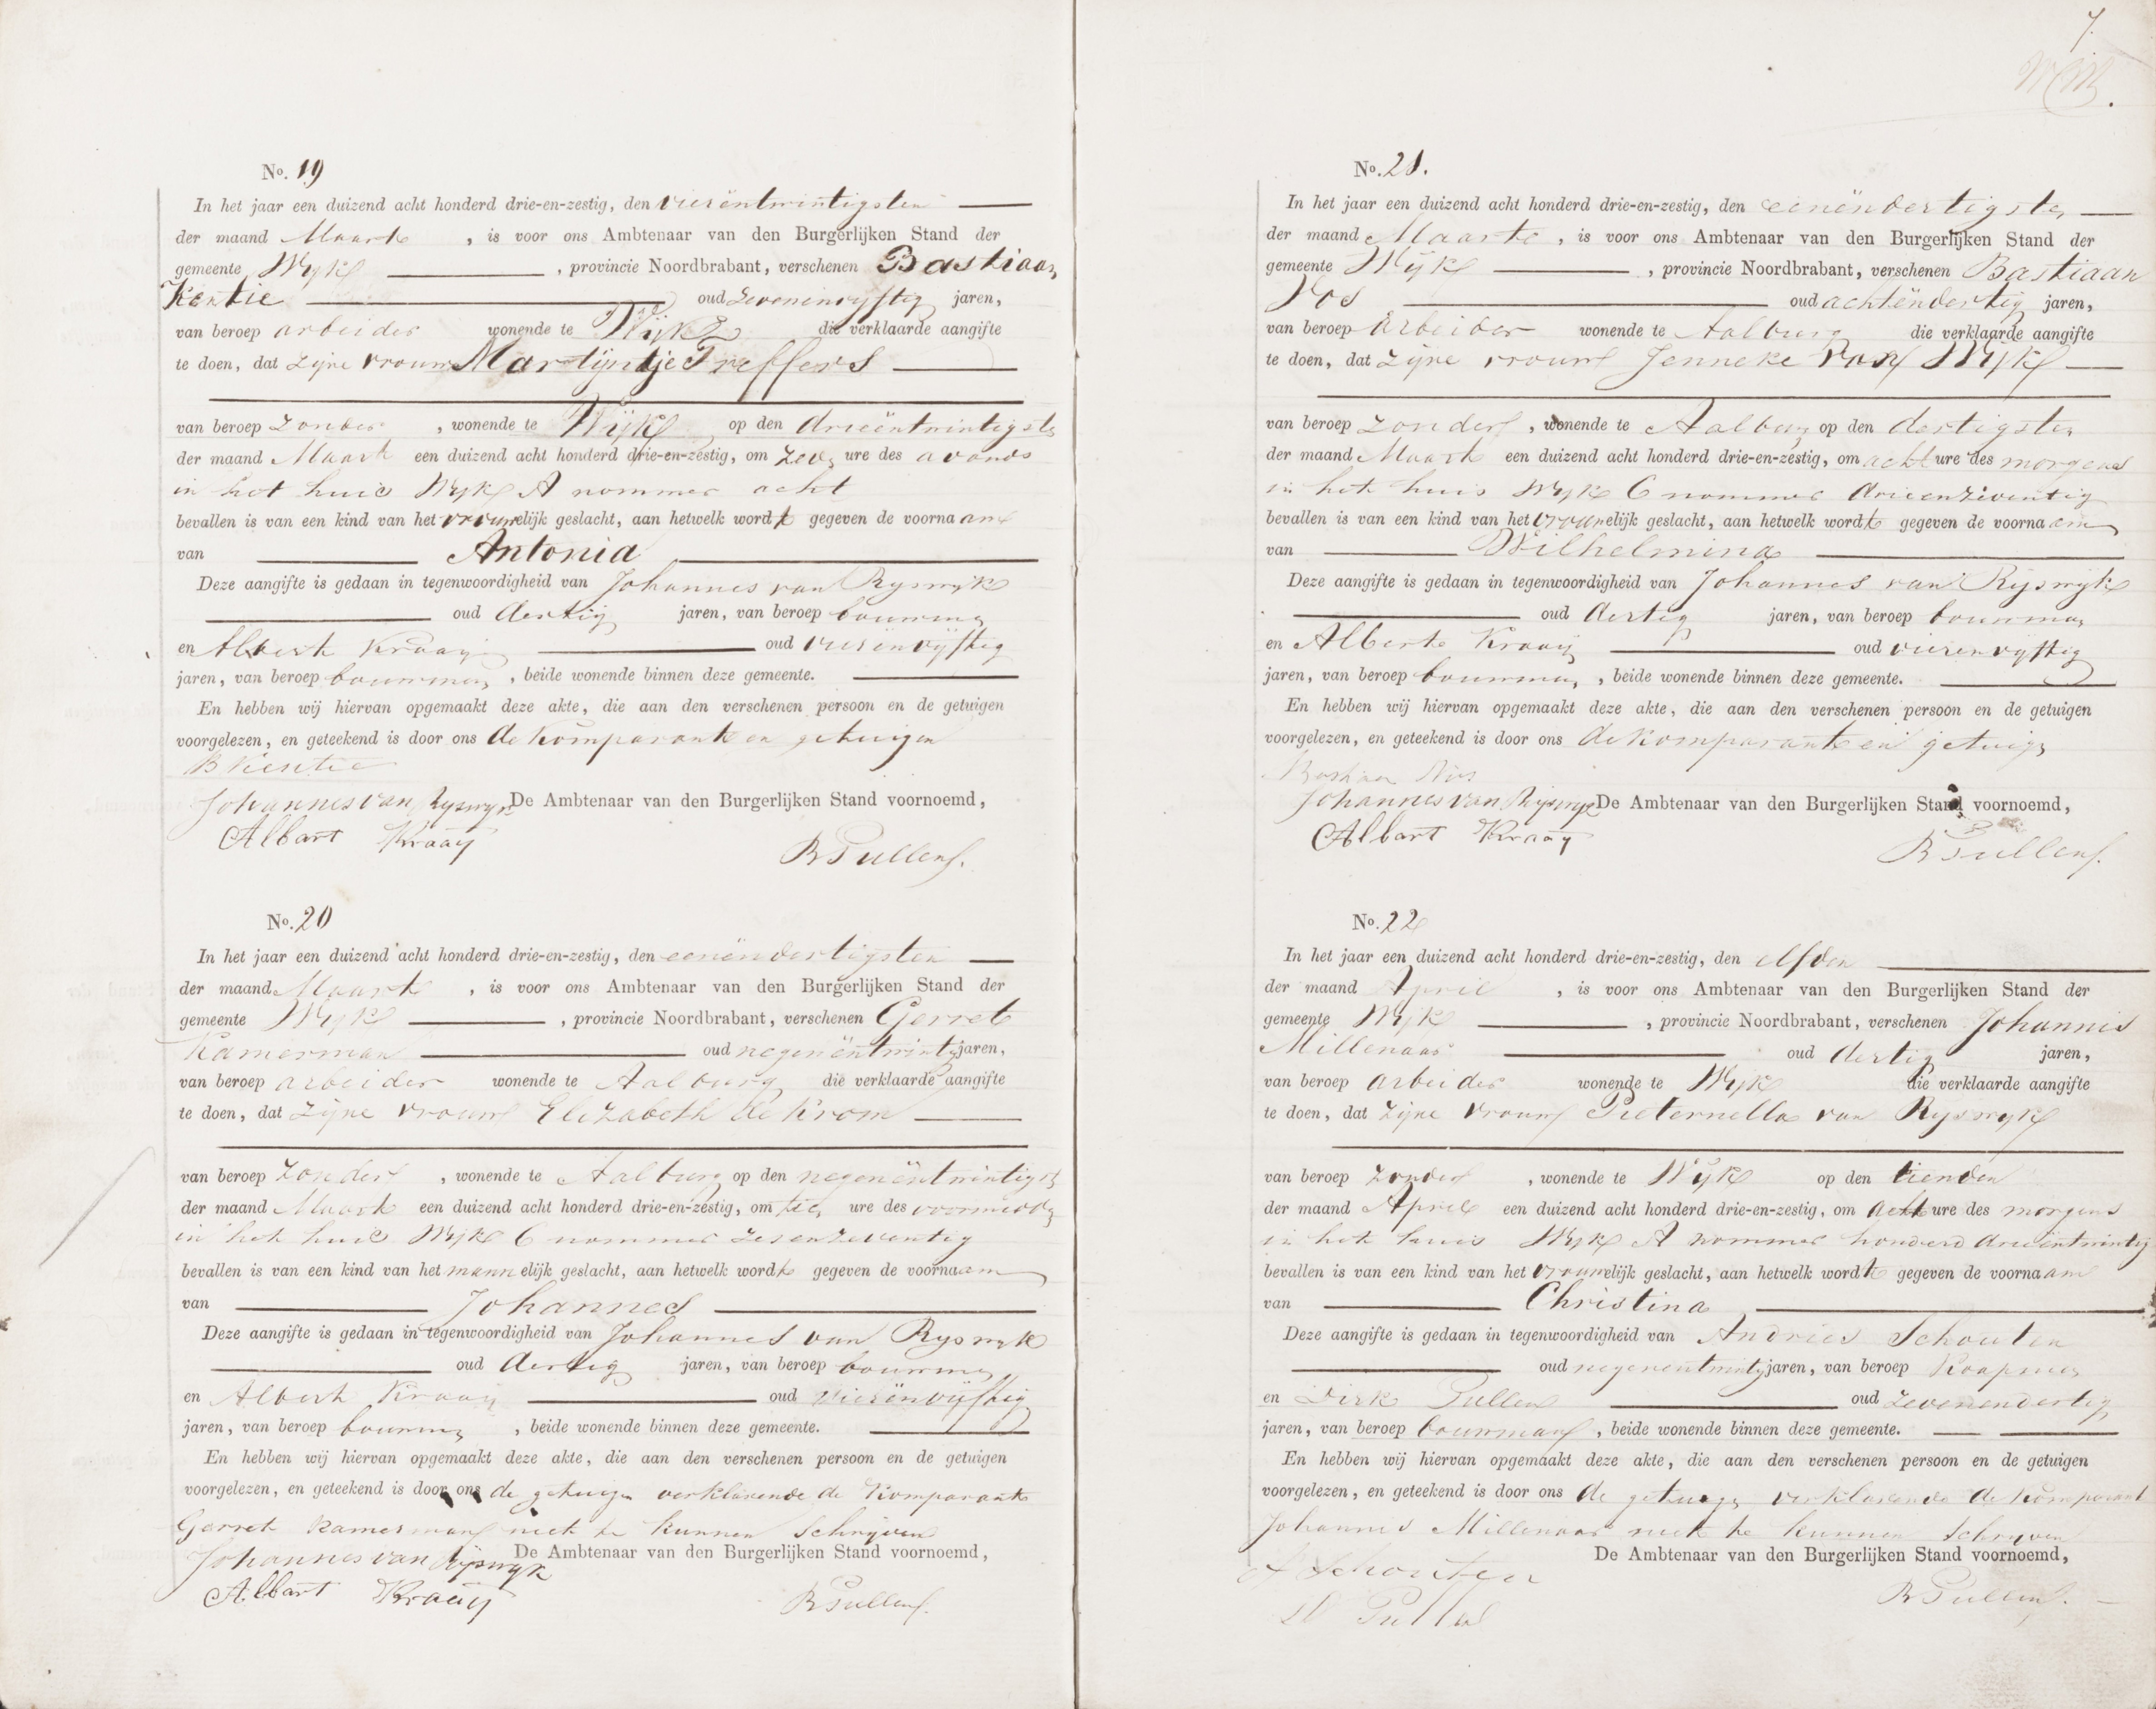 No. 19
In het jaar een duizend acht honderd drie-en-zestig, den vierëntwintigsten
der maand Maart , is voor ons Ambtenaar van den Burgerlijken Stand der
gemeente Wijk , provincie Noordbrabant, verschenen Bastiaan
Kentie oud zevenenvijftig jaren,
van beroep arbeider wonende te Wijk die verklaarde aangifte
te doen, dat zijne vrouw Martijntje Treffers
van beroep zonder , wonende te Wijk op den drieëntwintigste
der maand Maart een duizend acht honderd drie-en-zestig, om zeven ure des avonds
in het huis Wijk A nommer acht
bevallen is van een kind van het vrouwelijk geslacht, aan hetwelk wordt gegeven de voornaam
van Antonia
Deze aangifte is gedaan in tegenwoordigheid van Johannes van Rijswijk
oud dertig jaren, van beroep bouwman
en Albert Kraaij oud vierënvijftig
jaren, van beroep bouwman , beide wonende binnen deze gemeente.
En hebben wij hiervan opgemaakt deze akte, die aan den verschenen persoon en de getuigen
voorgelezen, en geteekend is door ons de komparant en getuigen
B Kentie
Johannes van Rijswijk De Ambtenaar van den Burgerlijken Stand voornoemd,
Albart Kraay
B Pullens.
No. 20
In het jaar een duizend acht honderd drie-en-zestig, den eenëndertigsten
der maand Maart , is voor ons Ambtenaar van den Burgerlijken Stand der
gemeente Wijk , provincie Noordbrabant, verschenen Gerret
Kamerman oud negenëntwintig jaren,
van beroep arbeider wonende te Aalburg die verklaarde aangifte
te doen, dat zijne vrouw Elizabeth de Krom
van beroep zonder , wonende te Aalburg op den negenëntwintigste
der maand Maart een duizend acht honderd drie-en-zestig, om tien ure des voormiddag
in het huis Wijk C nommer zesenzeventig
bevallen is van een kind van het mannelijk geslacht, aan hetwelk wordt gegeven de voornaam
van Johannes
Deze aangifte is gedaan in tegenwoordigheid van Johannes van Rijswijk
oud dertig jaren, van beroep bouwman
en Albert Kraaij oud vierënvijftig
jaren, van beroep bouwman , beide wonende binnen deze gemeente.
En hebben wij hiervan opgemaakt deze akte, die aan den verschenen persoon en de getuigen
voorgelezen, en geteekend is door ons de getuigen verklarende de komparant
Gerret Kamerman niet te kunnen schrijven
Johannes van Rijswijk De Ambtenaar van den Burgerlijken Stand voornoemd,
Albart Kraay
B Pullens.
7.
No. 21.
In het jaar een duizend acht honderd drie-en-zestig, den eenëndertigsten
der maand Maart , is voor ons Ambtenaar van den Burgerlijken Stand der
gemeente Wijk , provincie Noordbrabant, verschenen Bastiaan
Vos oud achtëndertig jaren,
van beroep arbeider wonende te Aalburg die verklaarde aangifte
te doen, dat zijne vrouw Jenneke van Wijk
van beroep zonder , wonende te Aalburg op den dertigsten
der maand Maart een duizend acht honderd drie-en-zestig, om acht ure des morgens
in het huis Wijk C nommer drieenzeventig
bevallen is van een kind van het vrouwelijk geslacht, aan hetwelk wordt gegeven de voornaam
van Wilhelmina
Deze aangifte is gedaan in tegenwoordigheid van Johannes van Rijswijk
oud dertig jaren, van beroep bouwman
en Albert Kraaij oud vierenvijftig
jaren, van beroep bouwman , beide wonende binnen deze gemeente.
En hebben wij hiervan opgemaakt deze akte, die aan den verschenen persoon en de getuigen
voorgelezen, en geteekend is door ons de komparant en getuigen
Bastiaan Vos
Johannes van Rijswijk De Ambtenaar van den Burgerlijken Stand voornoemd,
Albart Kraay
B Pullens.
No. 22
In het jaar een duizend acht honderd drie-en-zestig, den elfden
der maand April , is voor ons Ambtenaar van den Burgerlijken Stand der
gemeente Wijk , provincie Noordbrabant, verschenen Johannis
Millenaar oud dertig jaren,
van beroep arbeider wonende te Wijk die verklaarde aangifte
te doen, dat zijne vrouw Pieternella van Rijswijk
van beroep zonder , wonende te Wijk op den tienden
der maand April een duizend acht honderd drie-en-zestig, om acht ure des morgens
in het huis Wijk A nommer honderd drieëntwintig
bevallen is van een kind van het vrouwelijk geslacht, aan hetwelk wordt gegeven de voornaam
van Christina
Deze aangifte is gedaan in tegenwoordigheid van Andries Schouten
oud negenentwintig jaren, van beroep Koopman
en Dirk Pullens oud zevenendertig
jaren, van beroep bouwman , beide wonende binnen deze gemeente.
En hebben wij hiervan opgemaakt deze akte, die aan den verschenen persoon en de getuigen
voorgelezen, en geteekend is door ons de getuigen verklarende de komparant
Johannis Millenaar niet te kunnen schrijven
De Ambtenaar van den Burgerlijken Stand voornoemd,
A Schouten
D Pullens
B Pullens.